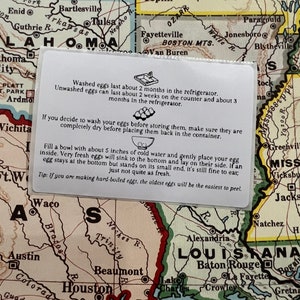 Enid
Bartlesville
Paragould
Guthrie R.
Tulsa
Jonesboro
Fayetteville
BOSTON MTS.
LAHOMA
Washed eggs last about 2 months in the refrigerator.
Unwashed eggs can last about 2 weeks on the counter and about 3
months in the refrigerator.
If you decide to wash your eggs before storing them, make sure they are
completely dry before placing them back in the container.
Fill a bowl with about 5 inches of cold water and gently place your egg
inside. Very fresh eggs will sink to the bottom and lay on their side. If an
egg stays at the bottom but stands on its small end, it's still fine to eat
just not quite as fresh.
Tip: If you are making hard boiled eggs, the oldest eggs will be the easiest to peel.
Wichita
Waco
A S
Alexandria
LOUISIANA
Austin
Beaumont
Baton Rouge
Houston
Lake
Charles
Crowley